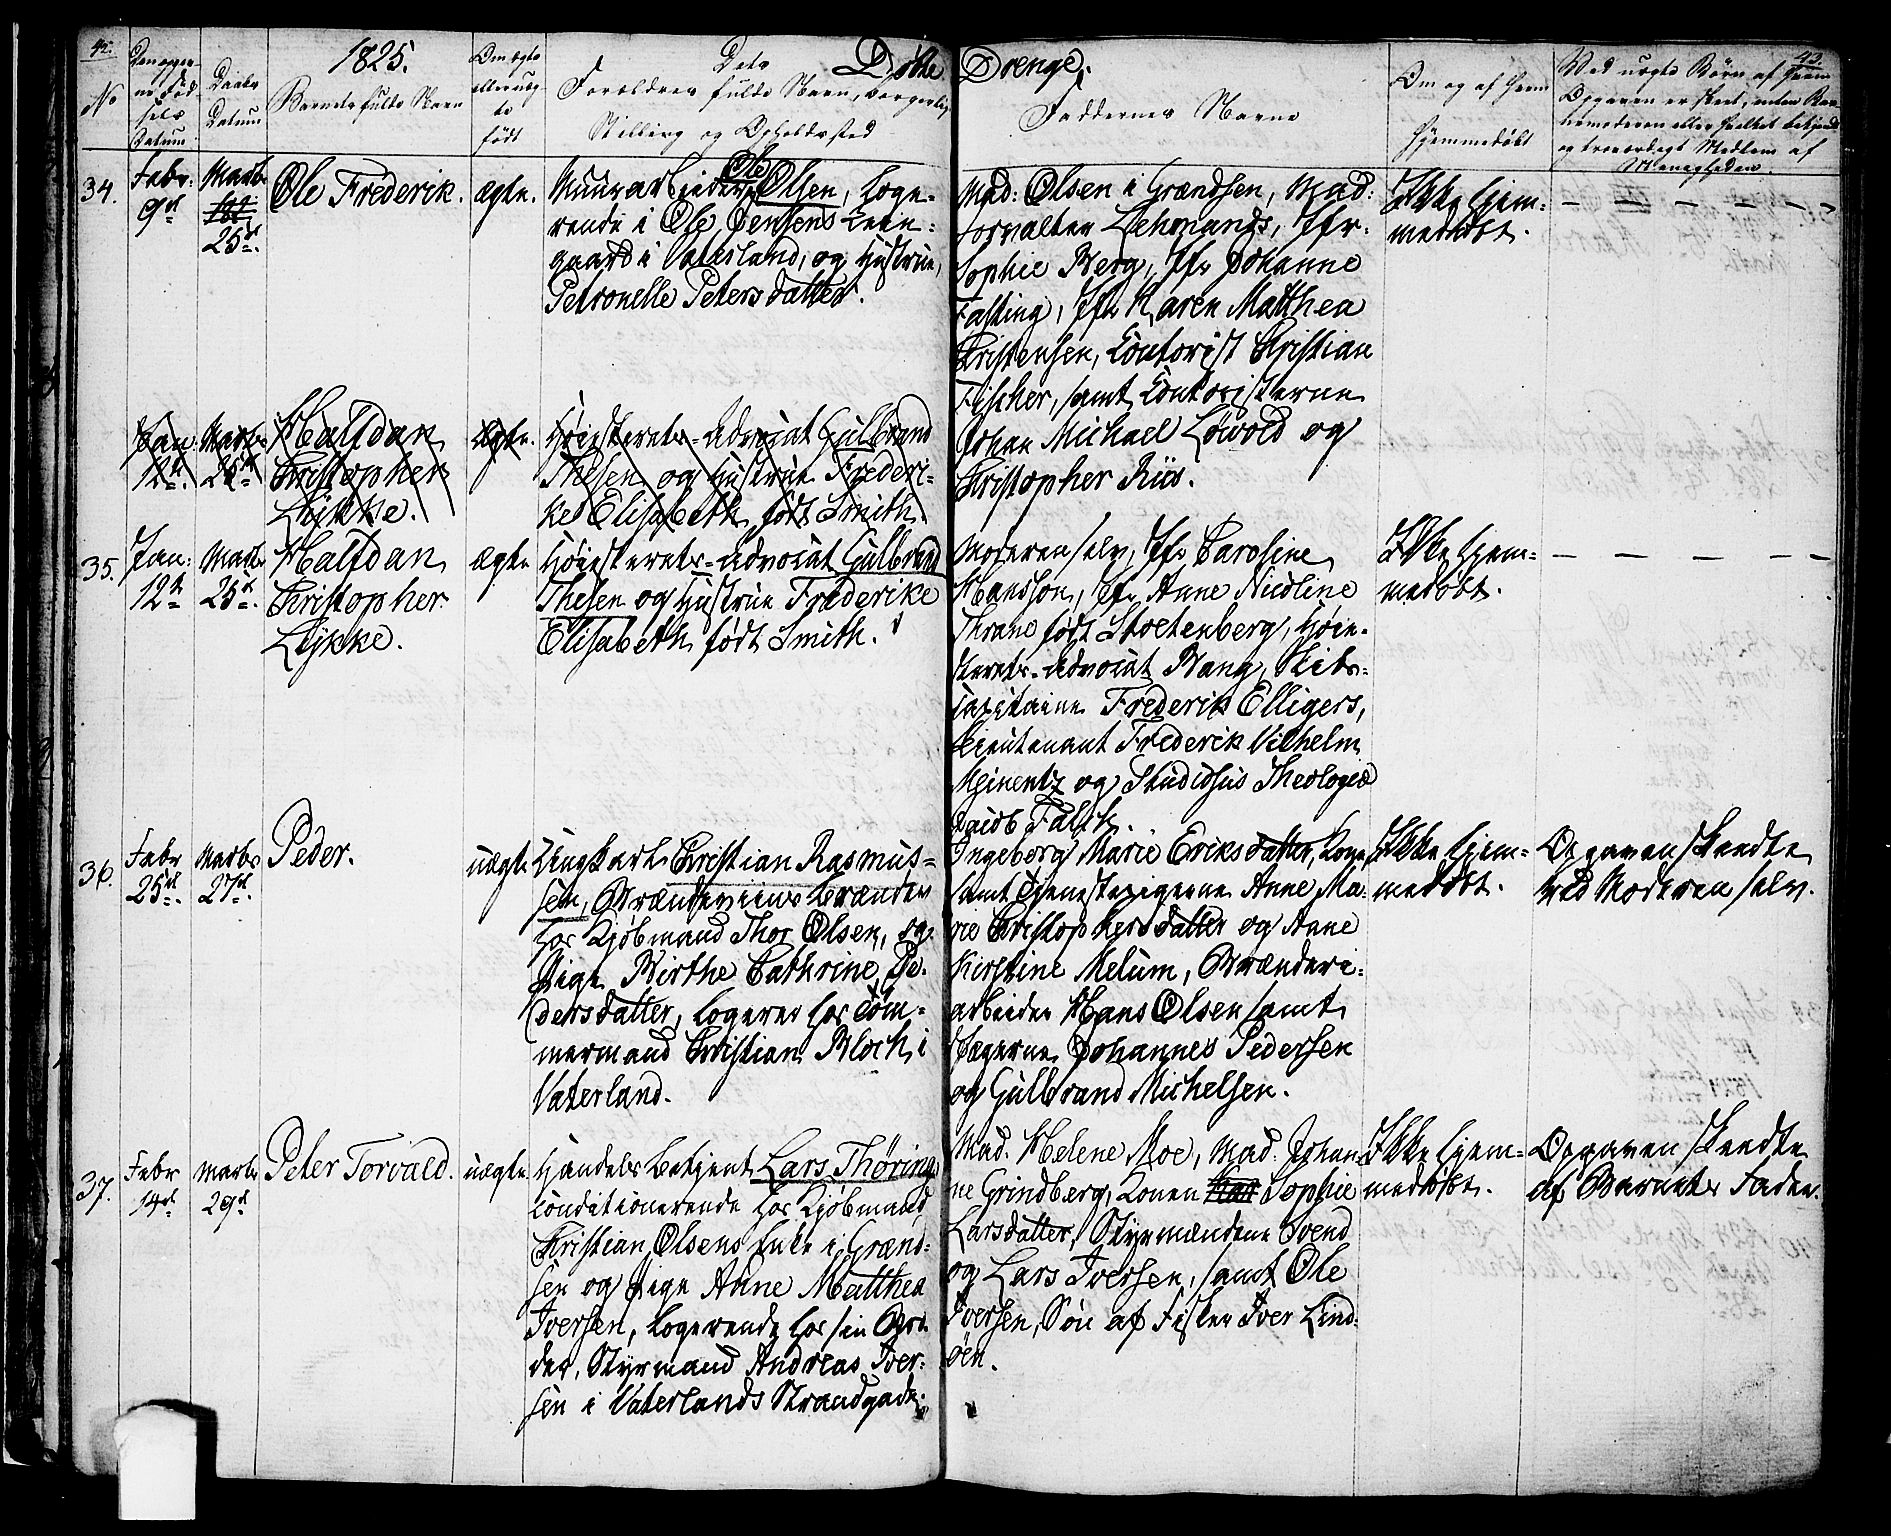 42.
1825.
Døbte Drenge.
43.
No
Den opgivne Fødsels Datum
Daabs Datum
Barnets fulde Navn
Om ægte eller uægte født
Dets Forældres fulde Navn, borgerlig
Stilling og Opholdssted
Faddernes Navne
Om og af hvem
hjemmedøbt
Ved uægte Børn af hvem
Opgaven er skeet, enten Bar-
nemoderen eller hvilket bekjendt
og troværdigt Medlem af
Menigheden.
34.
Febr.
9d
Marts
25d
Ole Frederik.
ægte.
Muurarbeider Ole Olsen, loge-
rende i Ole Jensens Leie-
gaard i Vaterland, og Hustrue,
Petronelle Petersdatter.
Mad: Olsen i Grændsen, Mad:
Forvalter Lehmands, Jfr.
Sophie Berg, Jfr Johanne
Fasting, Jfr Karen Matthea
Christensen, Contorist Christian
Fischer, samt Contoristerne
Johan Michael Løwold og
Christopher Riis.
Ikke hjem-
medøbt.
Jan:
12te
Marts
25d
Halfdan
Christopher
Lykke.
ægte.
Høiesterets-Advocat Gulbrand
Thesen og Hustrue Frederi-
ke Elisabeth født Smith.
35.
Jan:
12te
Marts
25d
Halfdan
Christopher
Lykke.
ægte
Høiesterets-Advocat Gulbrand
Thesen og Hustrue Frederike
Elisabeth født Smith.
Moderen selv, Jfr Caroline
Handson, Fr. Anne Nicoline
Thrane født Stoltenberg, Høie-
sterets-Advocat Bang, Skibs-
capitaine Frederik Elligers,
Lieutenant Frederik Vilhelm
og Studiosus Theologiæ
Jacob Falck.
Ikke hjem-
medøbt.
36.
Febr
25d
Marts
27d
Peder.
uægte
Ungkarl Christian Rasmus-
sen, Brændeviins Brænder
hos Kjøbmand Thor Olsen, og
Pige Birthe Cathrine Pe-
dersdatter, logerer hos Tøm-
mermand Christian Bloch i
Vaterland.
Ingeborg Marie Eriksdatter, Kone,
samt Tjenestepigerne Anne Ma-
rie Christophersdatter og Anne
Kirstine Melum, Brænderi-
arbeider Hans Olsen samt
Johannes Pedersen
og Gulbrand Michelsen.
Ikke hjem-
medøbt.
Opgaven skeedte
ved Moderen selv.
37.
Febr
14d
Marts
29d
Peter Torvald.
uægte
Handels Betjent Lars Thøring
conditionerende hos Kjøbmand
Christian Olsens Enke i Grænd-
sen og Pige Anne Matthea
Iversen, logerende hos sin Bro-
der, Styrmand Andreas Iver-
sen i Vaterlands Strandgade.
Mad. Helene Moe, Mad. Johan-
ne Grindberg, Konen Sophie
Larsdatter, Styrmændene Svend
og Lars Iversen, samt Ole
Iversen, Søn af Fisker Iver Lind-
øen.
Ikke hjem-
medøbt.
Opgaven skeedte
af Barnets Fader.